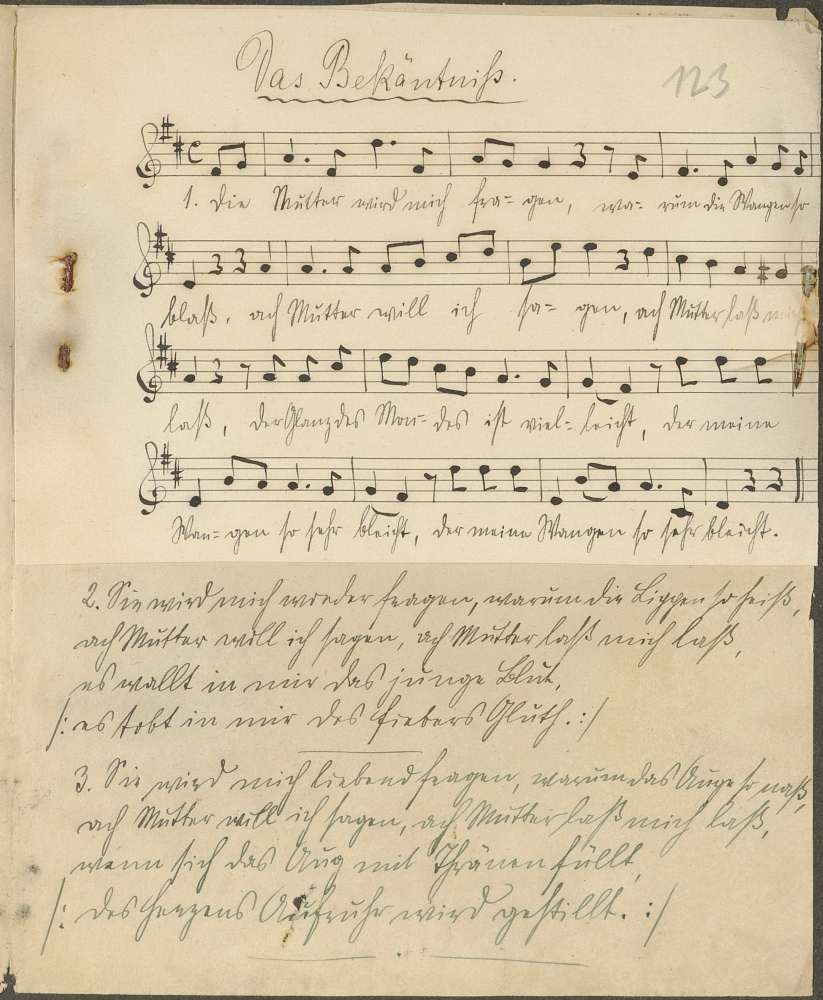 Das Bekäntniß.
123
1. Die Mutter wird mich fra= gen, wa= rum die Wangen so
blaß, ach Mutter will ich sa= gen, ach Mutter laß mich
laß, der Glanz des Mon= des ist viel= leicht, der meine
Wan= gen so sehr bleicht, der meine Wangen so sehr bleicht.
2. Sie wird mich wieder fragen, warum die Lippen so heiß,
ach Mutter will ich sagen, ach Mutter laß mich laß,
es wallt in mir das junge Blut,
/: es tobt in mir des Fiebers Gluth. :/
3. Sie wird mich liebend fragen, warum das Auge so naß,
ach Mutter will ich sagen, ach Mutter laß mich laß,
wenn sich das Aug mit Thränen füllt,
/: des Herzens Aufruhr wird gestillt. :/